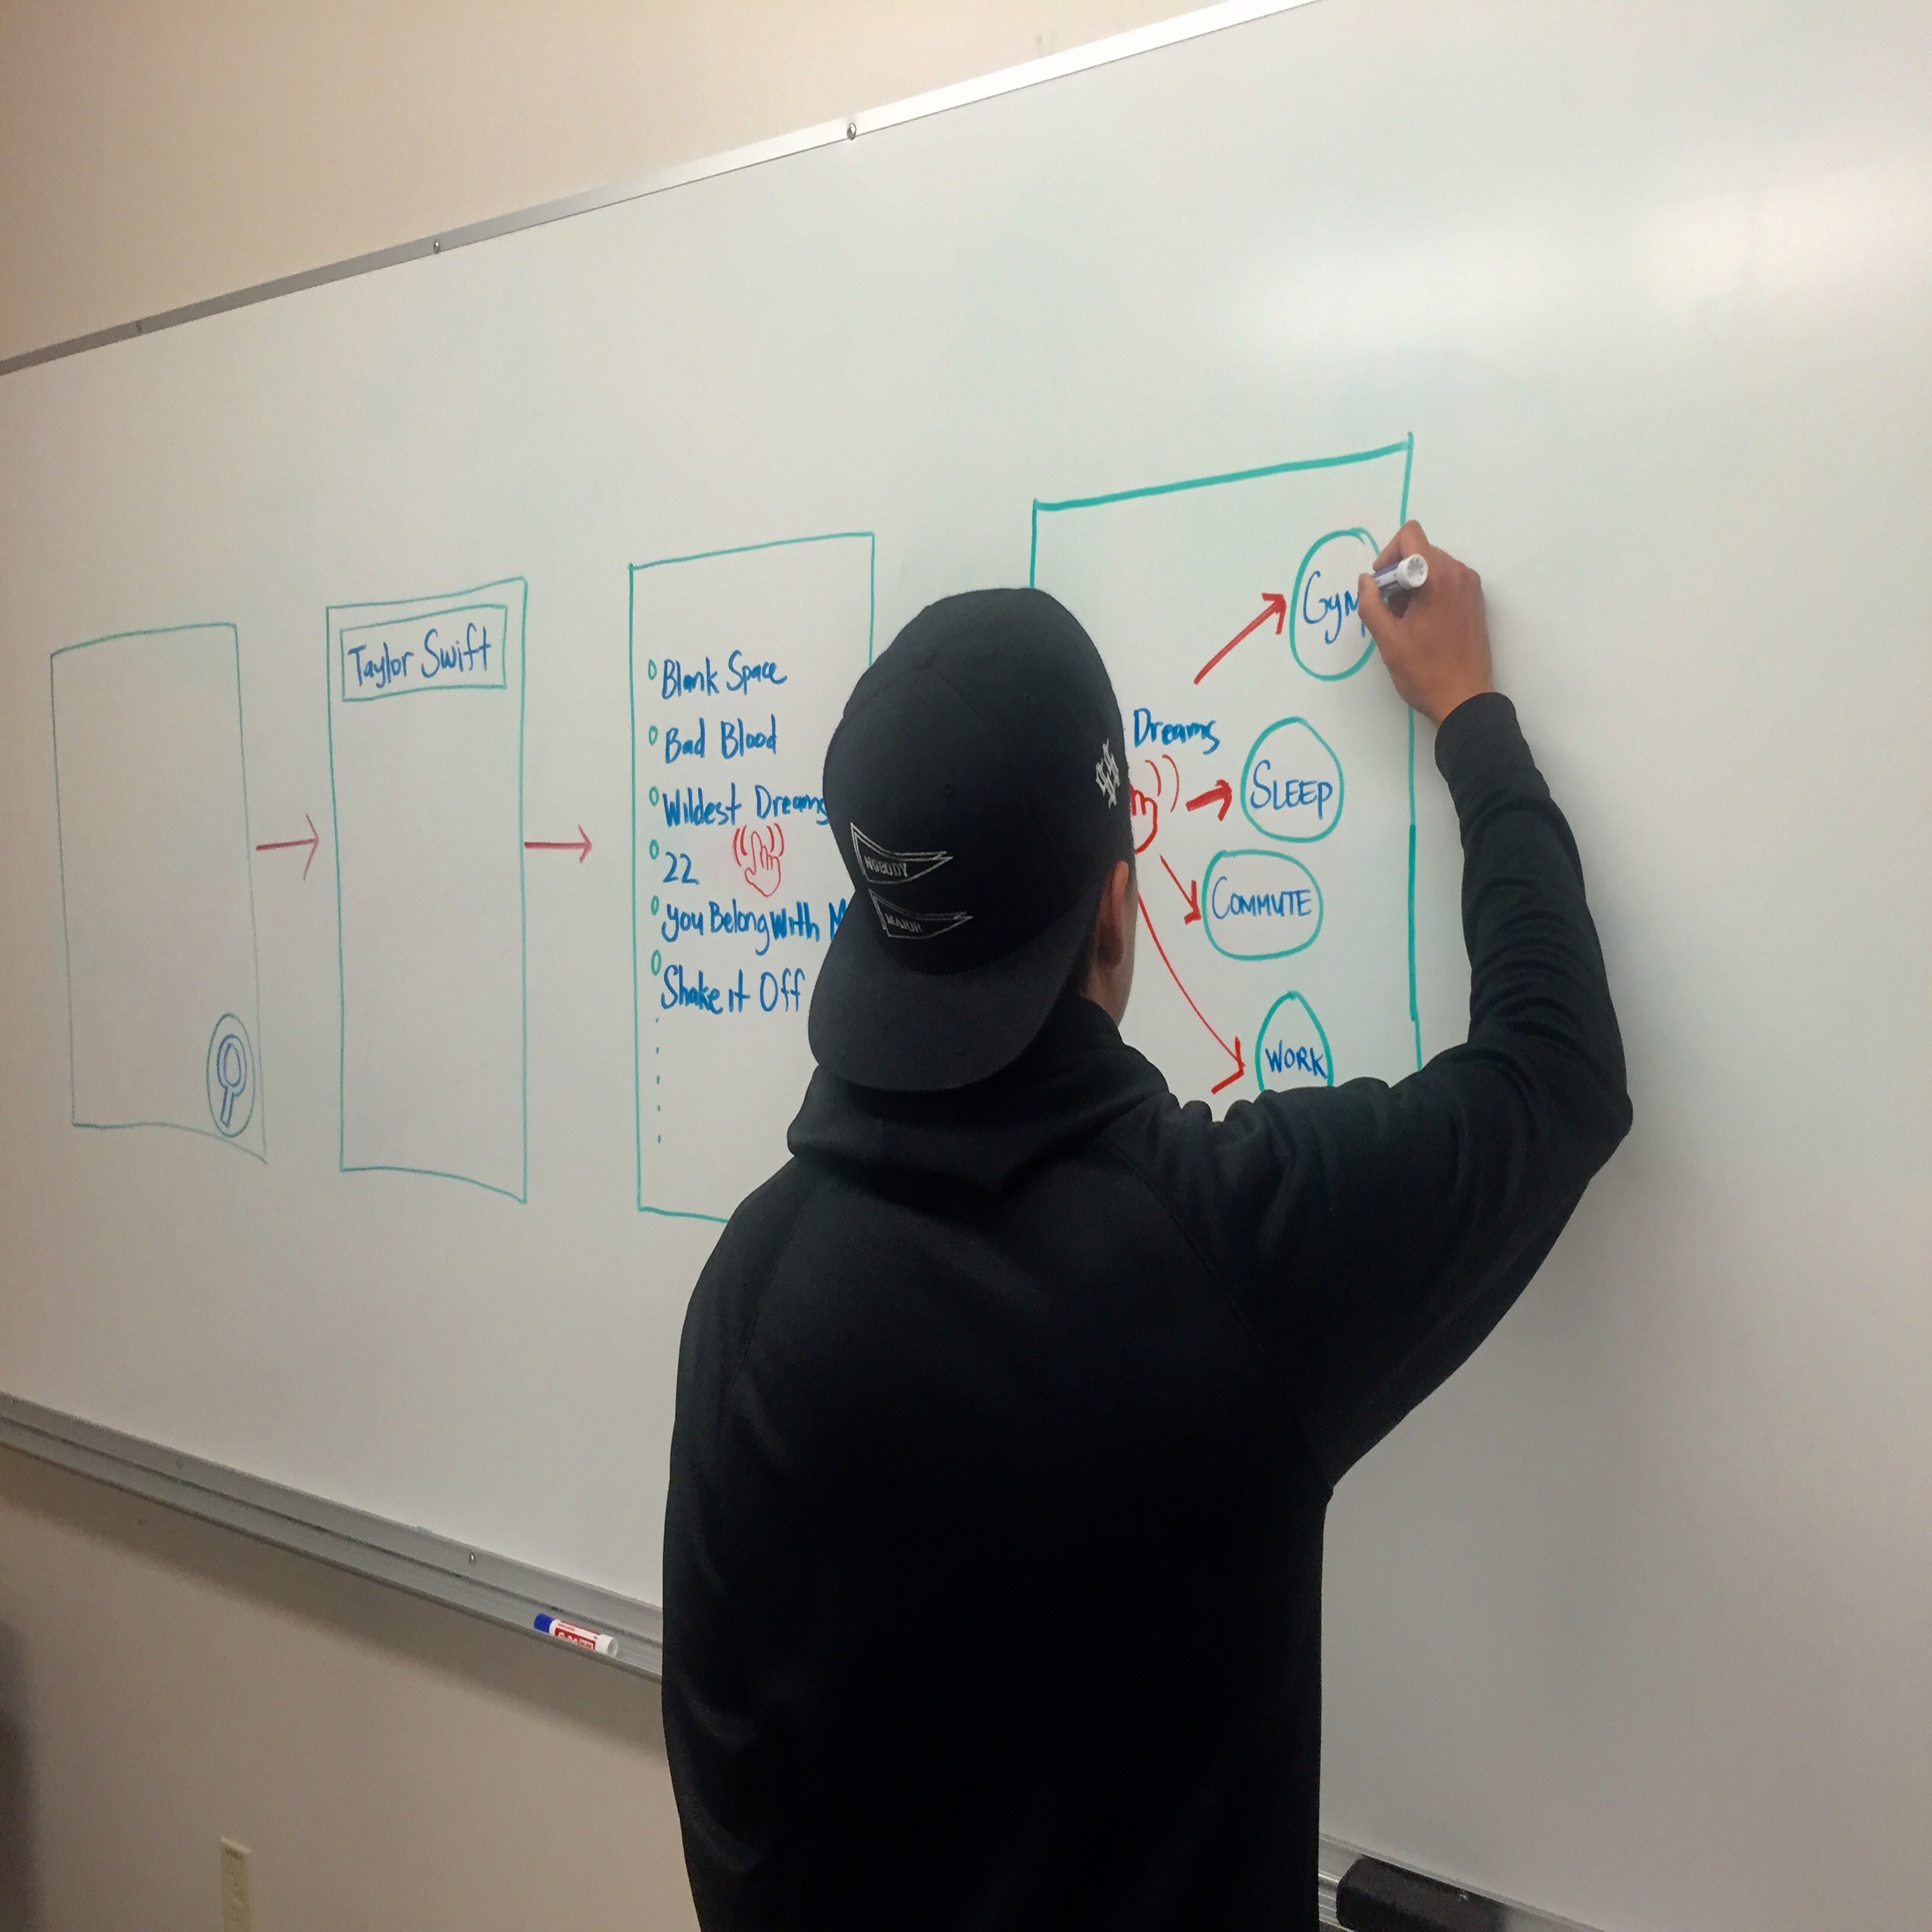 Taylor Swift
Blank Space
Bad Blood
Wildest Dreams
22
You Belong With M
Shake it Off
Dreams
Gym
SLEEP
COMMUTE
WORK
NOBODY
MAJOR